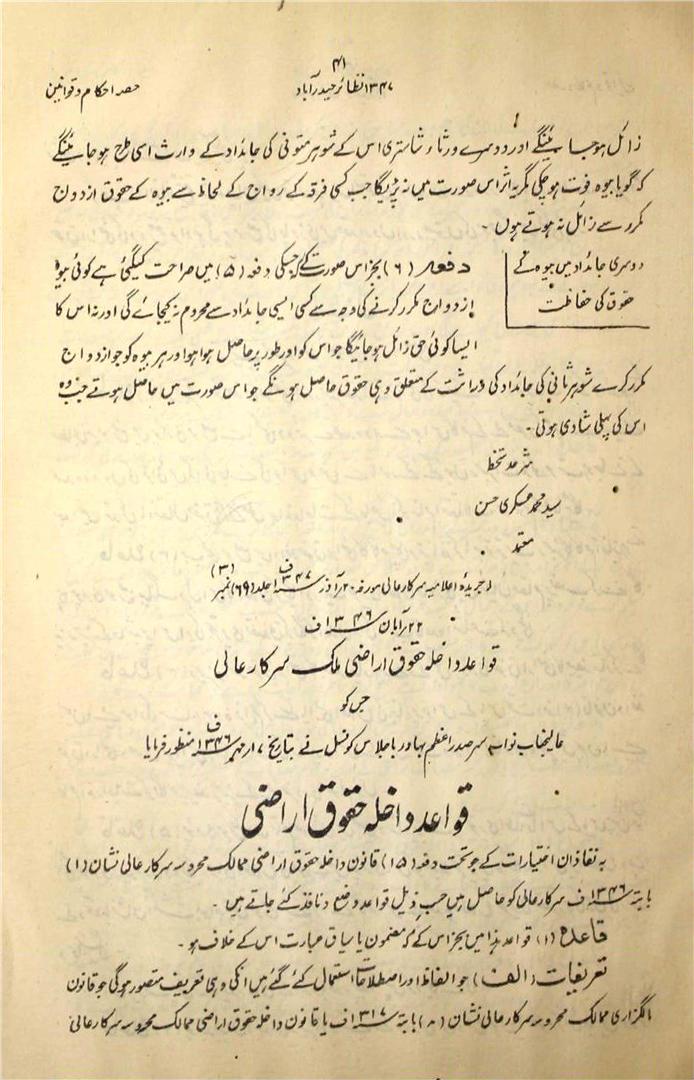 ۴۱
حصہ احکام و قوانین
۱۳۴۷ نظائر حیدرآباد
زائل ہوجائینگے اور دوسرے ورثاء شاستری اس کے شوہر متوفی کی جائداد کے وارث اسی طرح ہوجائینگے
کہ گویا بیوہ فوت ہوچکی مگر یہ اثر اس صورت میں نہ پڑیگا جب کسی فرقہ کے رواج کے لحاظ سے بیوہ کے حقوق ازدواج
مکرر سے زائل نہ ہوتے ہوں۔
دوسری جائداد میں بیوہ کے
حقوق کی حفاظت
دفعہ (۶) بجز اس صورت کے جسکی دفعہ (۵) میں صراحت کیگئی ہے کوئی بیوہ
ازدواج مکرر کرنے کی وجہ سے کسی ایسی جائداد سے محروم نہ کیجائے گی اور نہ اس کا
ایسا کوئی حق زائل ہوجائیگا جو اس کو اور طور پر حاصل ہوا ہو اور ہر بیوہ کو جو ازدواج
مکرر کرے شوہر ثانی کی جائداد کی وراثت کے متعلق وہی حقوق حاصل ہونگے جو اس صورت میں حاصل ہوتے جب وہ
اس کی پہلی شادی ہوتی۔
شرحدستخط
سید محمد عسکری حسن
معتمد
(جریدہ اعلامیہ سرکارعالی مورخہ ۲۰؍آذر ۱۳۴۷ف جلد (۶۹) نمبر (۳)
۲۲؍آبان ۱۳۴۶ف
قواعد داخلہ حقوق اراضی ملک سرکارعالی
جس کو
عالیجناب نواب سر صدراعظم بہادر باجلاس کونسل نے بتاریخ ۷؍مہر ۱۳۴۶ف منظور فرمایا
قواعد داخلہ حقوق اراضی
بہ نفاذ ان اختیارات کے جو تحت دفعہ (۱۵) قانون داخلہ حقوق اراضی ممالک محروسہ سرکارعالی نشان (۱)
بابتہ ۱۳۴۶ف سرکارعالی کو حاصل ہیں حسب ذیل قواعد وضع و نافذ کئے جاتے ہیں۔
قاعدہ (۱) قواعد ہذا میں بجز اس کے کہ مضمون یا سیاق عبارت اس کے خلاف ہو۔
تعریفات (الف) جو الفاظ اور اصطلاحات استعمال کئے گئے ہیں انکی وہی تعریف متصور ہوگی جو قانون
مالگزاری ممالک محروسہ سرکارعالی نشان (۸) بابتہ ۱۳۱۷ف یا قانون داخلہ حقوق اراضی ممالک محروسہ سرکارعالی